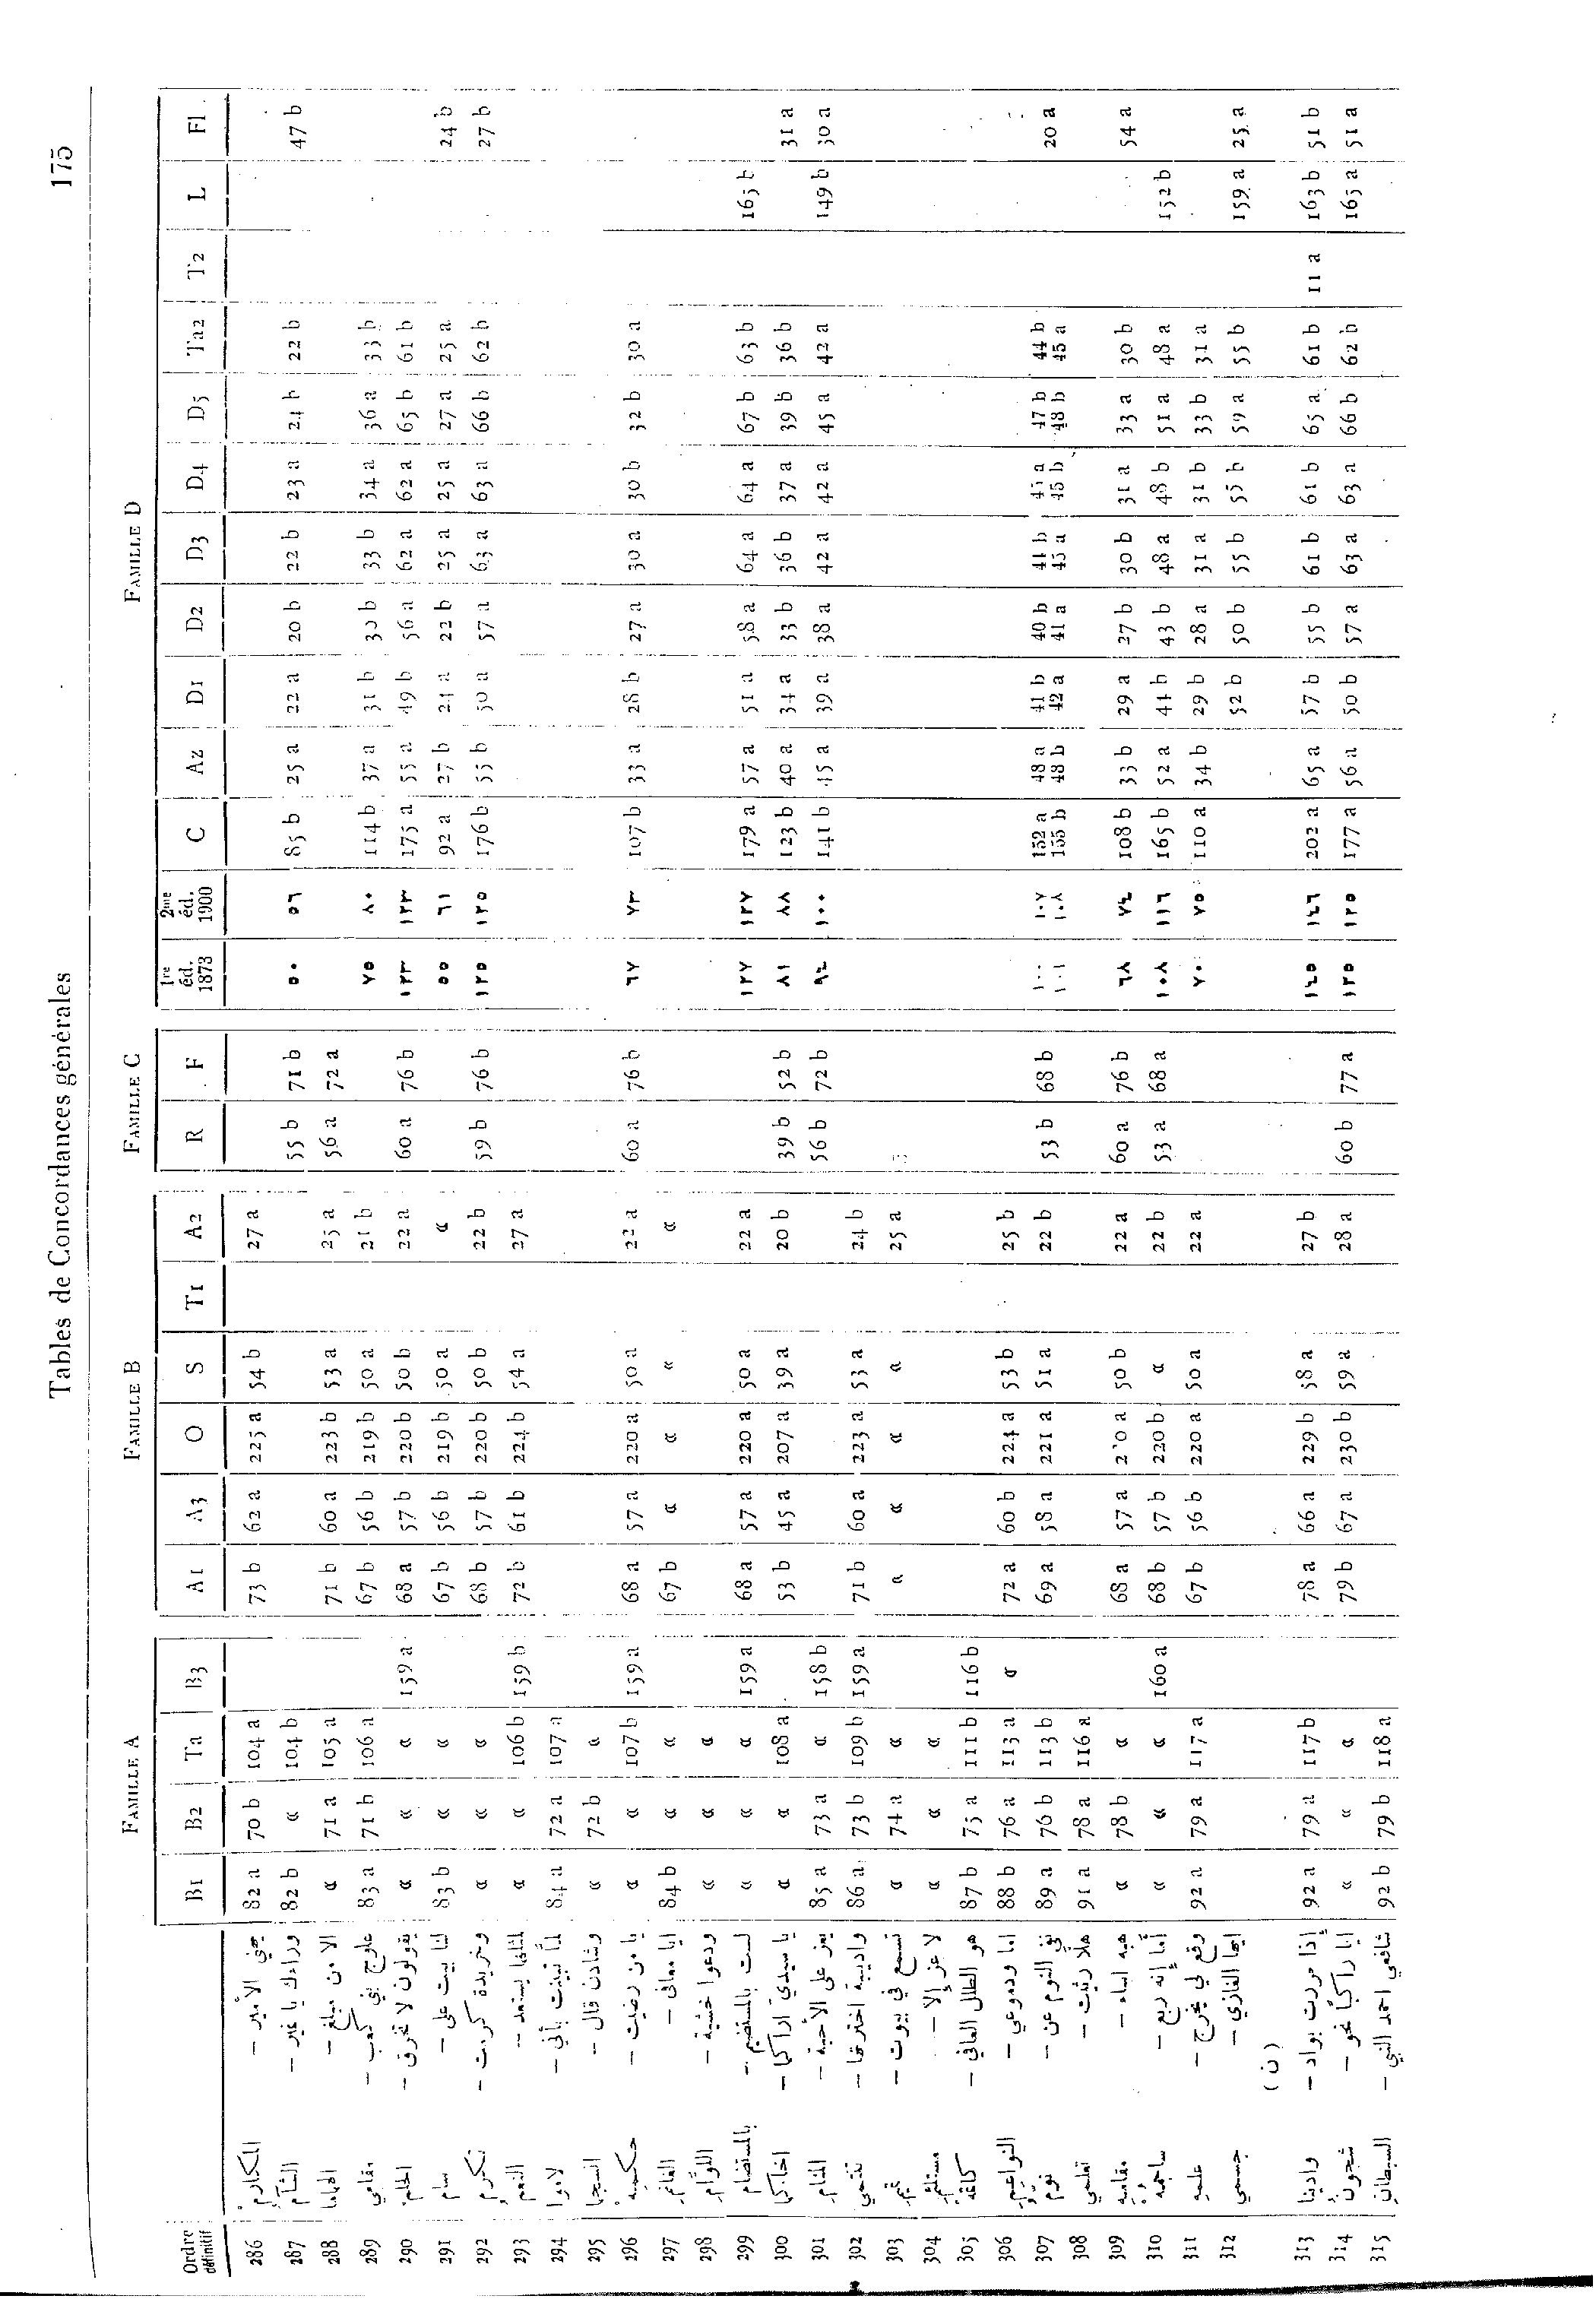 Tables de Concordances générales 175
FAMILLE A FAMILLE B FAMILLE C FAMILLE D
Ordre définitif B1 B2 Ta B3 A1 A3 O S T1 A2 R F 1re éd. 1873 2me éd. 1900 C Az D1 D2 D3 D4 D5 Ta2 T2 L Fl
286 المكارم يجني الأمير — 82 a 70 b 104 a 73 b 62 a 225 a 54 b 27 a
287 الشآم وراءك يا نمير — 82 b « 104 b 55 b 71 b ٥٠ ٥٦ 85 b 25 a 22 a 20 b 22 b 23 a 24 b 22 b 47 b
288 الا من مبلغ — « 71 a 105 a 71 b 60 a 223 b 53 a 25 a 56 a 72 a
289 مقامي علوج بني كعب — 83 a 71 b 106 a 67 b 56 b 219 b 50 a 21 b ٧٥ ٨٠ 114 b 37 a 31 b 30 b 33 b 34 a 36 a 33 b
290 الحلم يقولون لا تخرق — « « « 159 a 68 a 57 b 220 b 50 b 22 a 60 a 76 b ١٢٣ ١٢٣ 175 a 55 a 49 b 56 a 62 a 62 a 65 b 61 b
291 سام لنا بيت على — 83 b « « 67 b 56 b 219 b 50 a « ٥٥ ٦١ 92 a 27 b 24 a 22 b 25 a 25 a 27 a 25 a 24 b
292 تكرم وخريدة كرمت — « « « 68 b 57 b 220 b 50 b 22 b 59 b 76 b ١٢٥ ١٢٥ 176 b 55 b 50 a 57 a 63 a 63 a 66 b 62 b 27 b
293 النعم لمثلها يستعد — « « 106 b 159 b 72 b 61 b 224 b 54 a 27 a
294 لاموا لمّا تبيّنت بأني — 84 a 72 a 107 a
295 السجا وشادن قال — « 72 b «
296 حكميه يا من رضيت — « « 107 b 159 a 68 a 57 a 220 a 50 a 22 a 60 a 76 b ٦٧ ٧٣ 107 b 33 a 28 b 27 a 30 a 30 b 32 b 30 a
297 الغانم ايا معافى — 84 b « « 67 b « « « «
298 اللوّام ودعوا خشية — « « «
299 بالمستضام لست بالمستضيم — « « « 159 a 68 a 57 a 220 a 50 a 22 a ١٢٧ ١٢٧ 179 a 57 a 51 a 58 a 64 a 64 a 67 b 63 b 165 b
300 اخاكما يا سيديّ اراكما — « « 108 a 53 b 45 a 207 a 39 a 20 b 39 b 52 b ٨١ ٨٨ 123 b 40 a 34 a 33 b 36 b 37 a 39 b 36 b 31 a
301 المنام يعز على الأحبة — 85 a 73 a « 158 b 56 b 72 b ٩٤ ١٠٠ 141 b 45 a 39 a 38 a 42 a 42 a 45 a 42 a 149 b 30 a
302 تنتمي واديبة اخترتها — 86 a 73 b 109 b 159 a 71 b 60 a 223 a 53 a 24 b
303 تميم تسمع في بيوت — « 74 a « « « « « 25 a
304 مستلئم لا عز إلا — « « «
305 كاظمة هو الطلل العافي — 87 b 75 a 111 b 116 b
306 النواعيم اما ودموعي — 88 b 76 a 113 a « 72 a 60 b 224 a 53 b 25 b
307 نوّم نفى النوم عن — 89 a 76 b 113 b 69 a 58 a 221 a 51 a 22 b 53 b 68 b ١٠٠ ١٠١ ١٠٧ ١٠٨ 152 a 155 b 48 a 48 b 41 b 42 a 40 b 41 a 44 b 45 a 45 a 45 b 47 b 48 b 44 b 45 a 20 a
308 تعلمي هلّا رثيت — 91 a 78 a 116 a
309 مقاميه هبه اساء — « 78 b « 68 a 57 a 220 a 50 b 22 a 60 a 76 b ٦٨ ٧٤ 108 b 33 b 29 a 27 b 30 b 31 a 33 a 30 b 54 a
310 ساجمه أما إنه ربع — « « « 160 a 68 b 57 b 220 b « 22 b 53 a 68 a ١٠٨ ١١٦ 165 b 52 a 44 b 43 b 48 a 48 b 51 a 48 a 152 b
311 عليه وقع لي يخرج — 92 a 79 a 117 a 67 b 56 b 220 a 50 a 22 a ٧٠ ٧٥ 110 a 34 b 29 b 28 a 31 a 31 b 33 b 31 a
312 جسمي ايها الغازي — 52 b 50 b 55 b 55 b 59 a 55 b 159 a 25 a
( ن )
313 وادينا إذا مررت بواد — 92 a 79 a 117 b 78 a 66 a 229 b 58 a 27 b ١٤٥ ١٤٦ 202 a 65 a 57 b 55 b 61 b 61 b 65 a 61 b 11 a 163 b 51 b
314 شجون ايا راكباً نحو — « « « 79 b 67 a 230 b 59 a 28 a 60 b 77 a ١٢٥ ١٢٥ 177 a 56 a 50 b 57 a 63 a 63 a 66 b 62 b 165 a 51 a
315 السبطان شافعي احمد النبي — 92 b 79 b 118 a